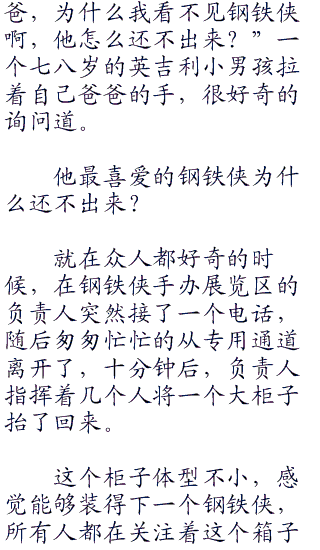 爸，为什么我看不见钢铁侠
啊，他怎么还不出来？”一
个七八岁的英吉利小男孩拉
着自己爸爸的手，很好奇的
询问道。
他最喜爱的钢铁侠为什
么还不出来？
就在众人都好奇的时
候，在钢铁侠手办展览区的
负责人突然接了一个电话，
随后匆匆忙忙的从专用通道
离开了，十分钟后，负责人
指挥着几个人将一个大柜子
抬了回来。
这个柜子体型不小，感
觉能够装得下一个钢铁侠，
所有人都在关注着这个箱子